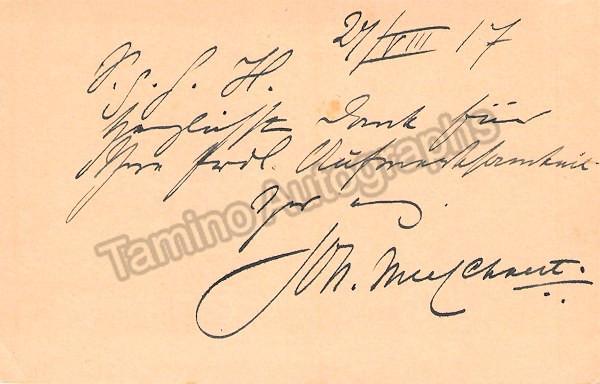 27/VIII 17
S. g. H. H.
herzlichst Dank für
Ihre frdl. Aufmerksamkeit
Ihr erg.
Joh. Messchaert.
Tamino Autographs